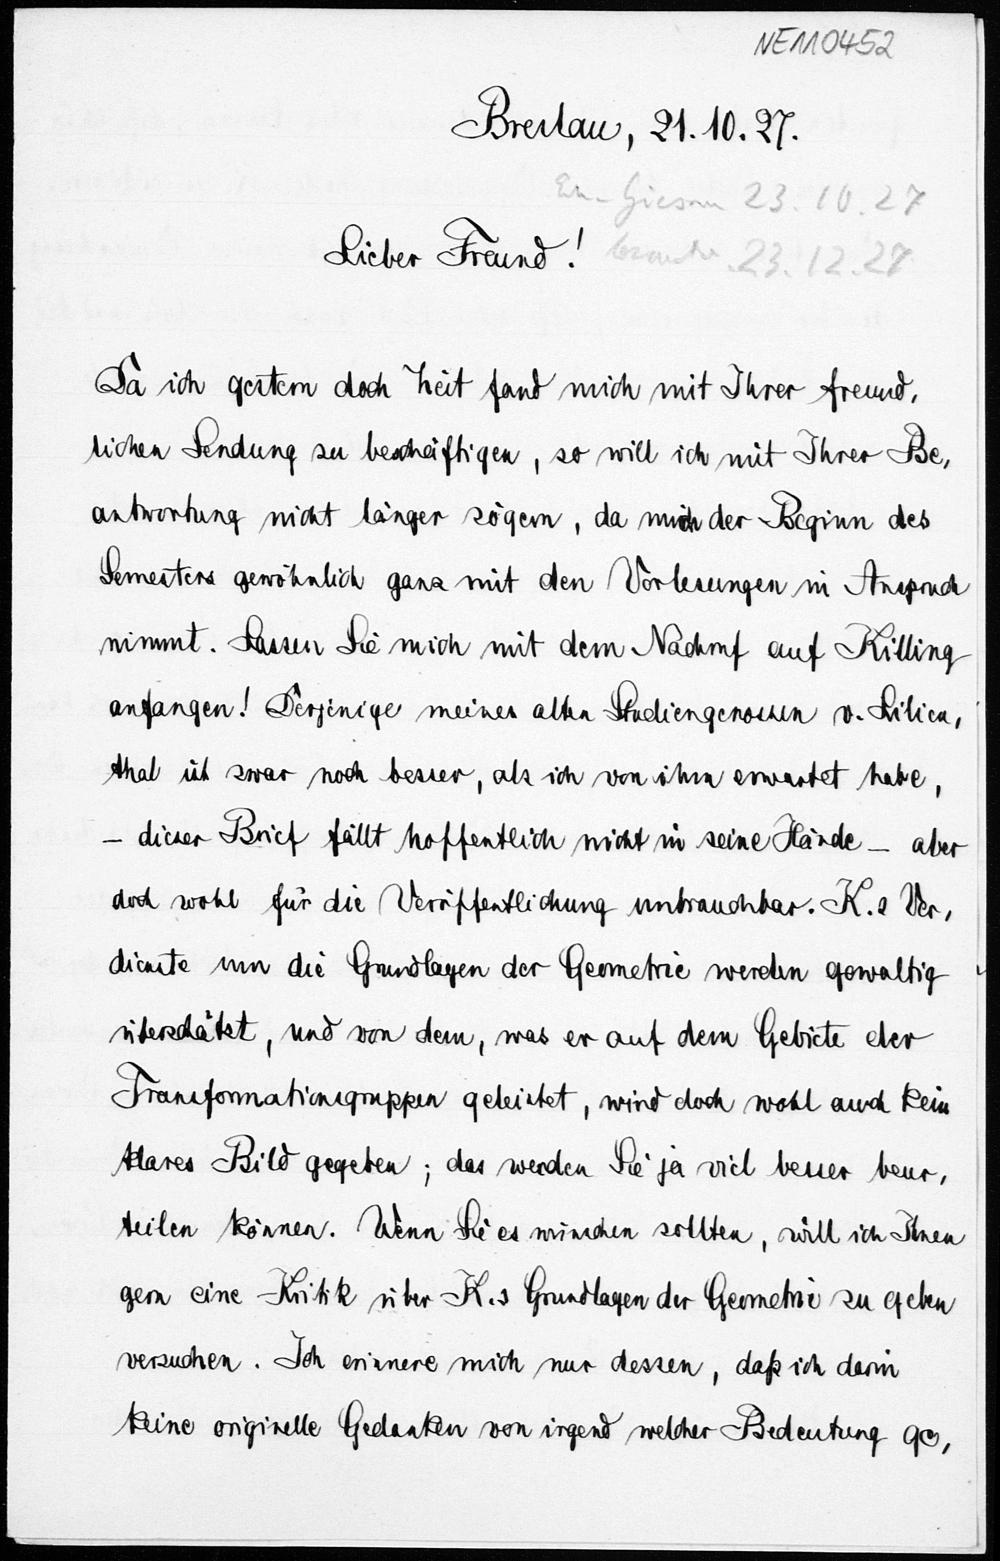 NE110452
Breslau, 21. 10. 27.
Giessen 23. 10. 27
23. 12. 27
Lieber Freund!
Da ich gestern doch Zeit fand mich mit Ihrer freund,
lichen Sendung zu beschäftigen, so will ich mit Ihrer Be,
antwortung nicht länger zögern, da mich der Beginn des
Semesters gewöhnlich ganz mit den Vorlesungen in Anspruch
nimmt. Lassen Sie mich mit dem Nachruf auf Killing
anfangen! Derjenige meines alten Studiengenossen v. Lilien,
thal ist zwar noch besser, als ich von ihm erwartet habe,
– dieser Brief fällt hoffentlich nicht in seine Hände – aber
doch wohl für die Veröffentlichung unbrauchbar. K.s Ver,
dienste um die Grundlagen der Geometrie werden gewaltig
überschätzt, und von dem, was er auf dem Gebiete der
Transformationsgruppen geleistet, wird doch wohl auch kein
klares Bild gegeben; das werden Sie ja viel besser beur,
teilen können. Wenn Sie es wünschen sollten, will ich Ihnen
gern eine Kritik über K.s Grundlagen der Geometrie zu geben
versuchen. Ich erinnere mich nur dessen, daß ich darin
keine originelle Gedanken von irgend welcher Bedeutung ge,